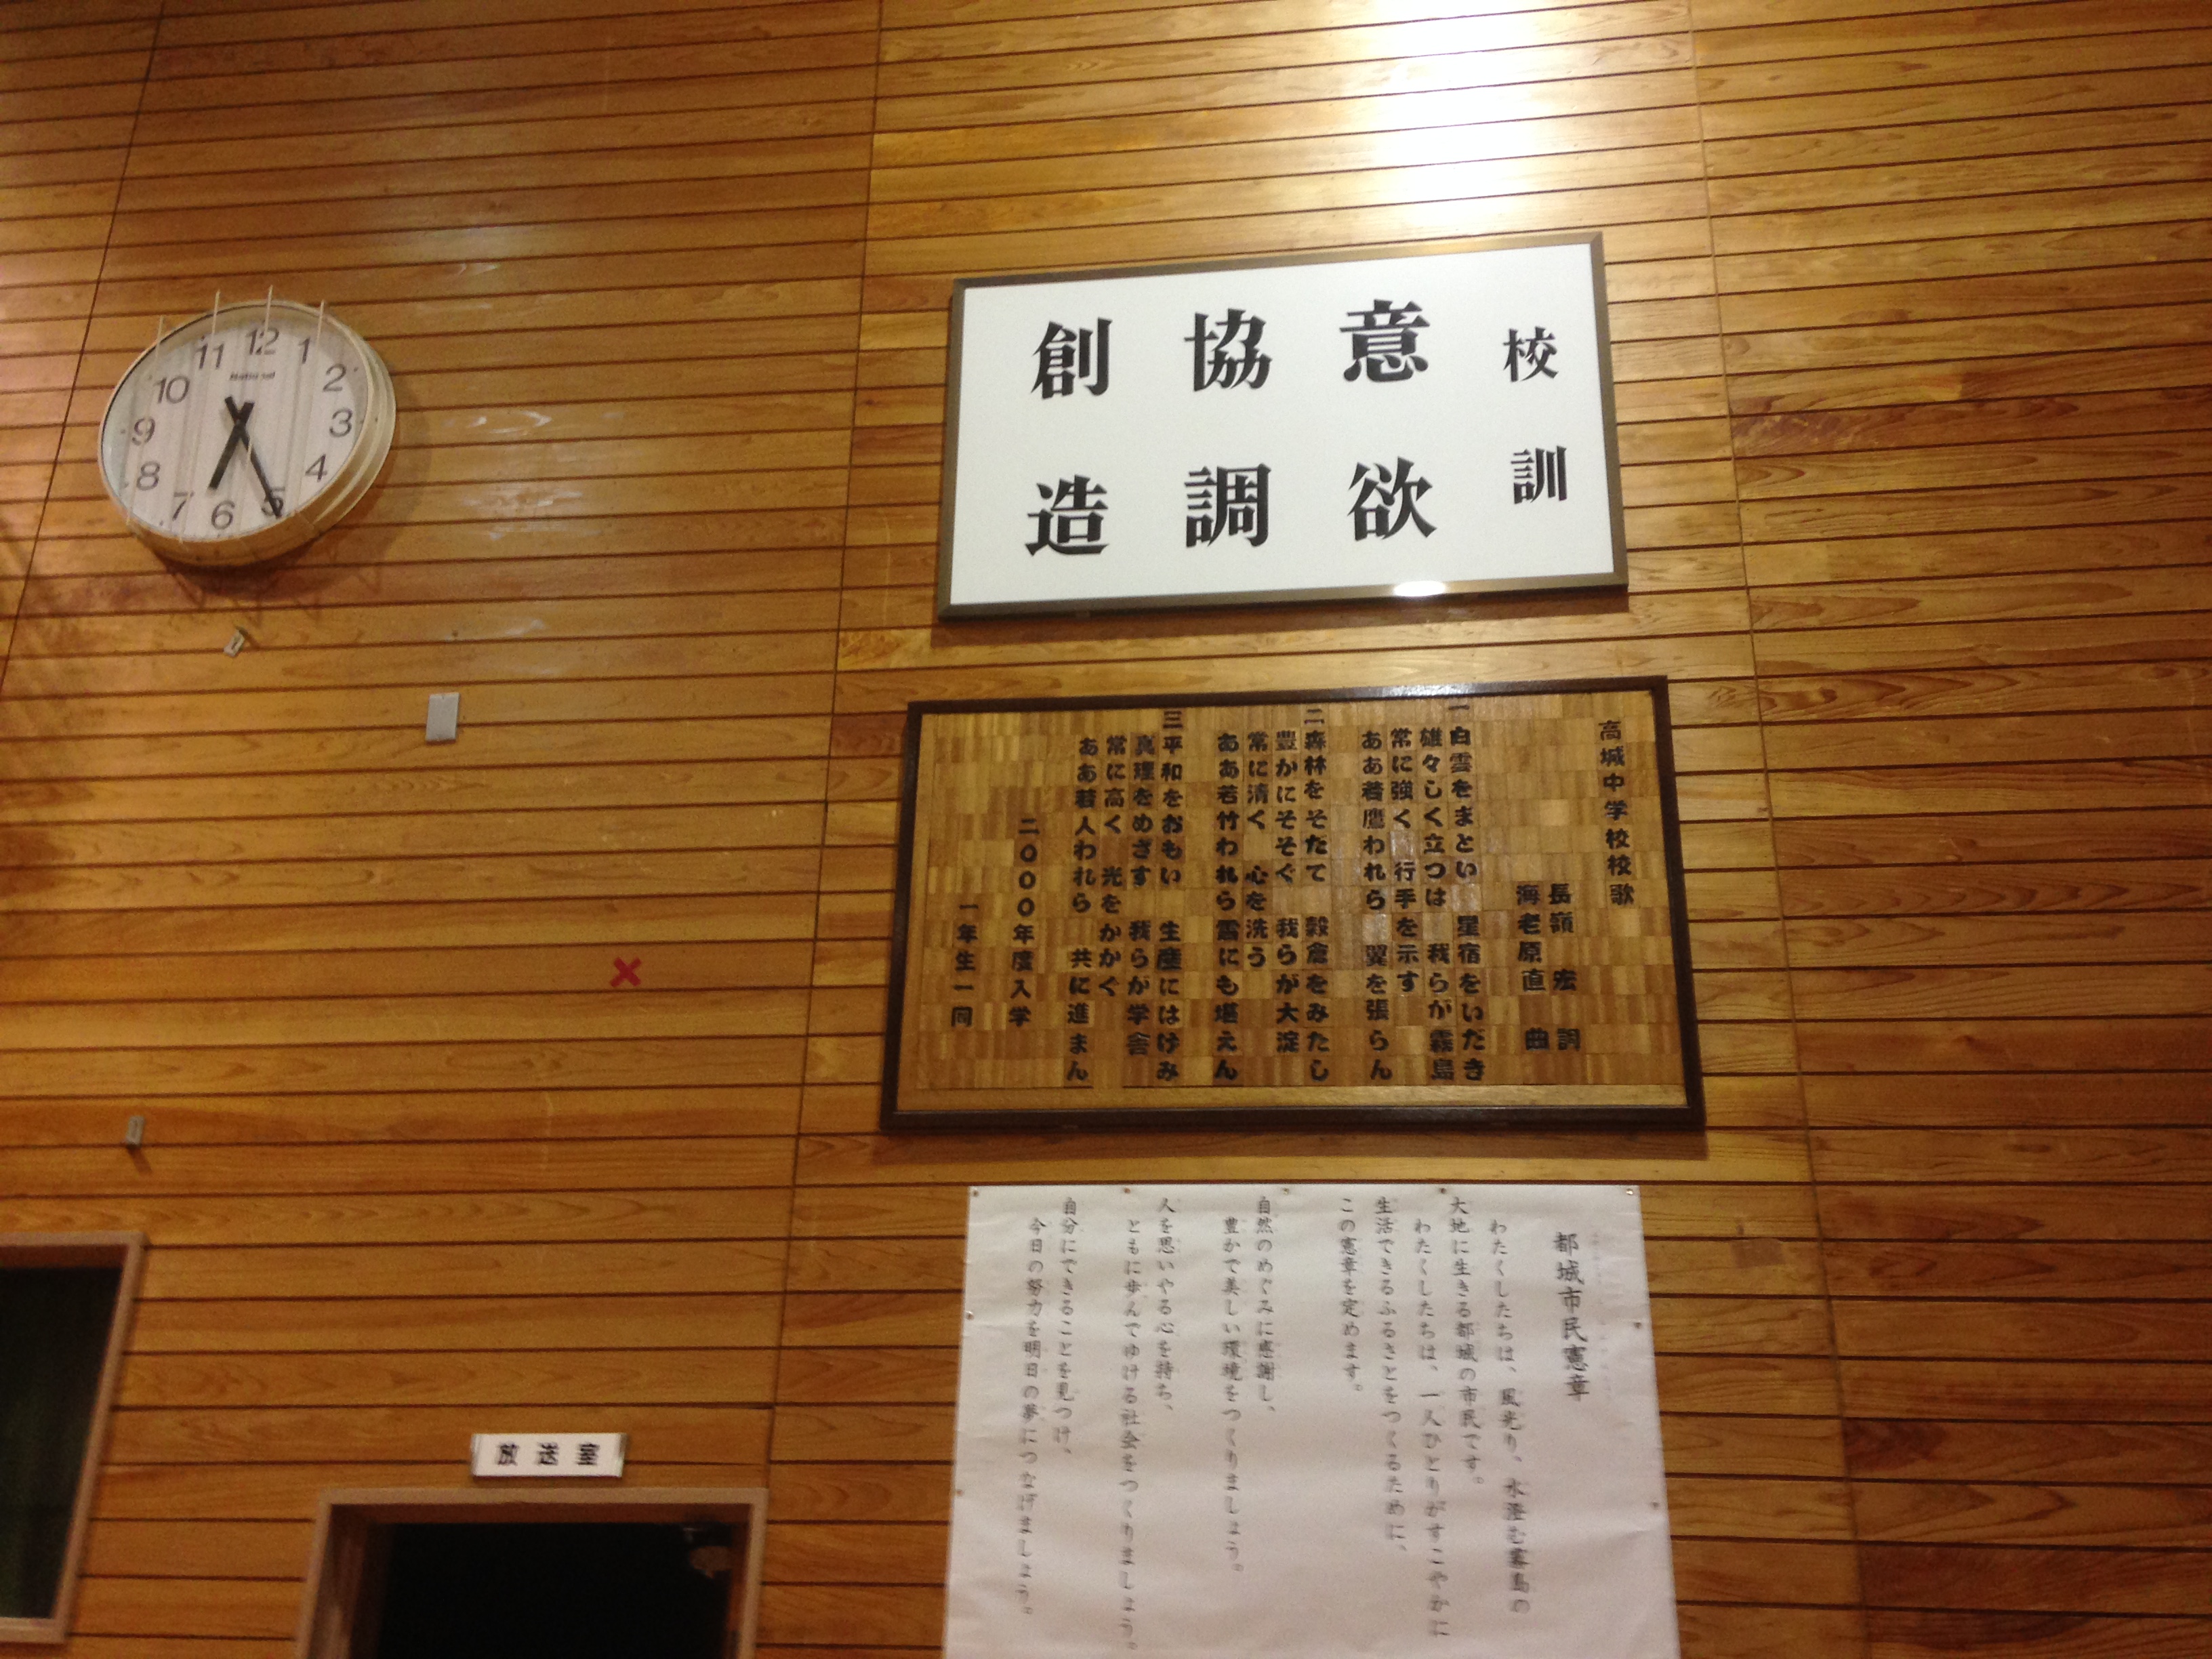 12
1
2
3
4
5
6
7
8
9
10
11
校訓
意欲
協調
創造
高城中学校校歌
長嶺 宏 詞
海老原直 曲
一 白雲をまとい 星宿をいだき
雄々しく立つは 我らが霧島
常に強く 行手を示す
ああ若鷹われら 翼を張らん
二 森林をそだて 穀倉をみたし
豊かにそそぐ 我らが大淀
常に清く 心を洗う
ああ若竹われら 雪にも堪えん
三 平和をおもい 生産にはげみ
真理をめざす 我らが学舎
常に高く 光をかかぐ
ああ若人われら 共に進まん
二〇〇〇年度入学
一年生一同
都城市民憲章
わたくしたちは、風光り、水澄む霧島の
大地に生きる都城の市民です。
わたくしたちは、一人ひとりがすこやかに
生活できるふるさとをつくるために、
この憲章を定めます。
自然のめぐみに感謝し、
豊かで美しい環境をつくりましょう。
人を思いやる心を持ち、
ともに歩んでゆける社会をつくりましょう。
自分にできることを見つけ、
今日の努力を明日の夢につなげましょう。
放送室